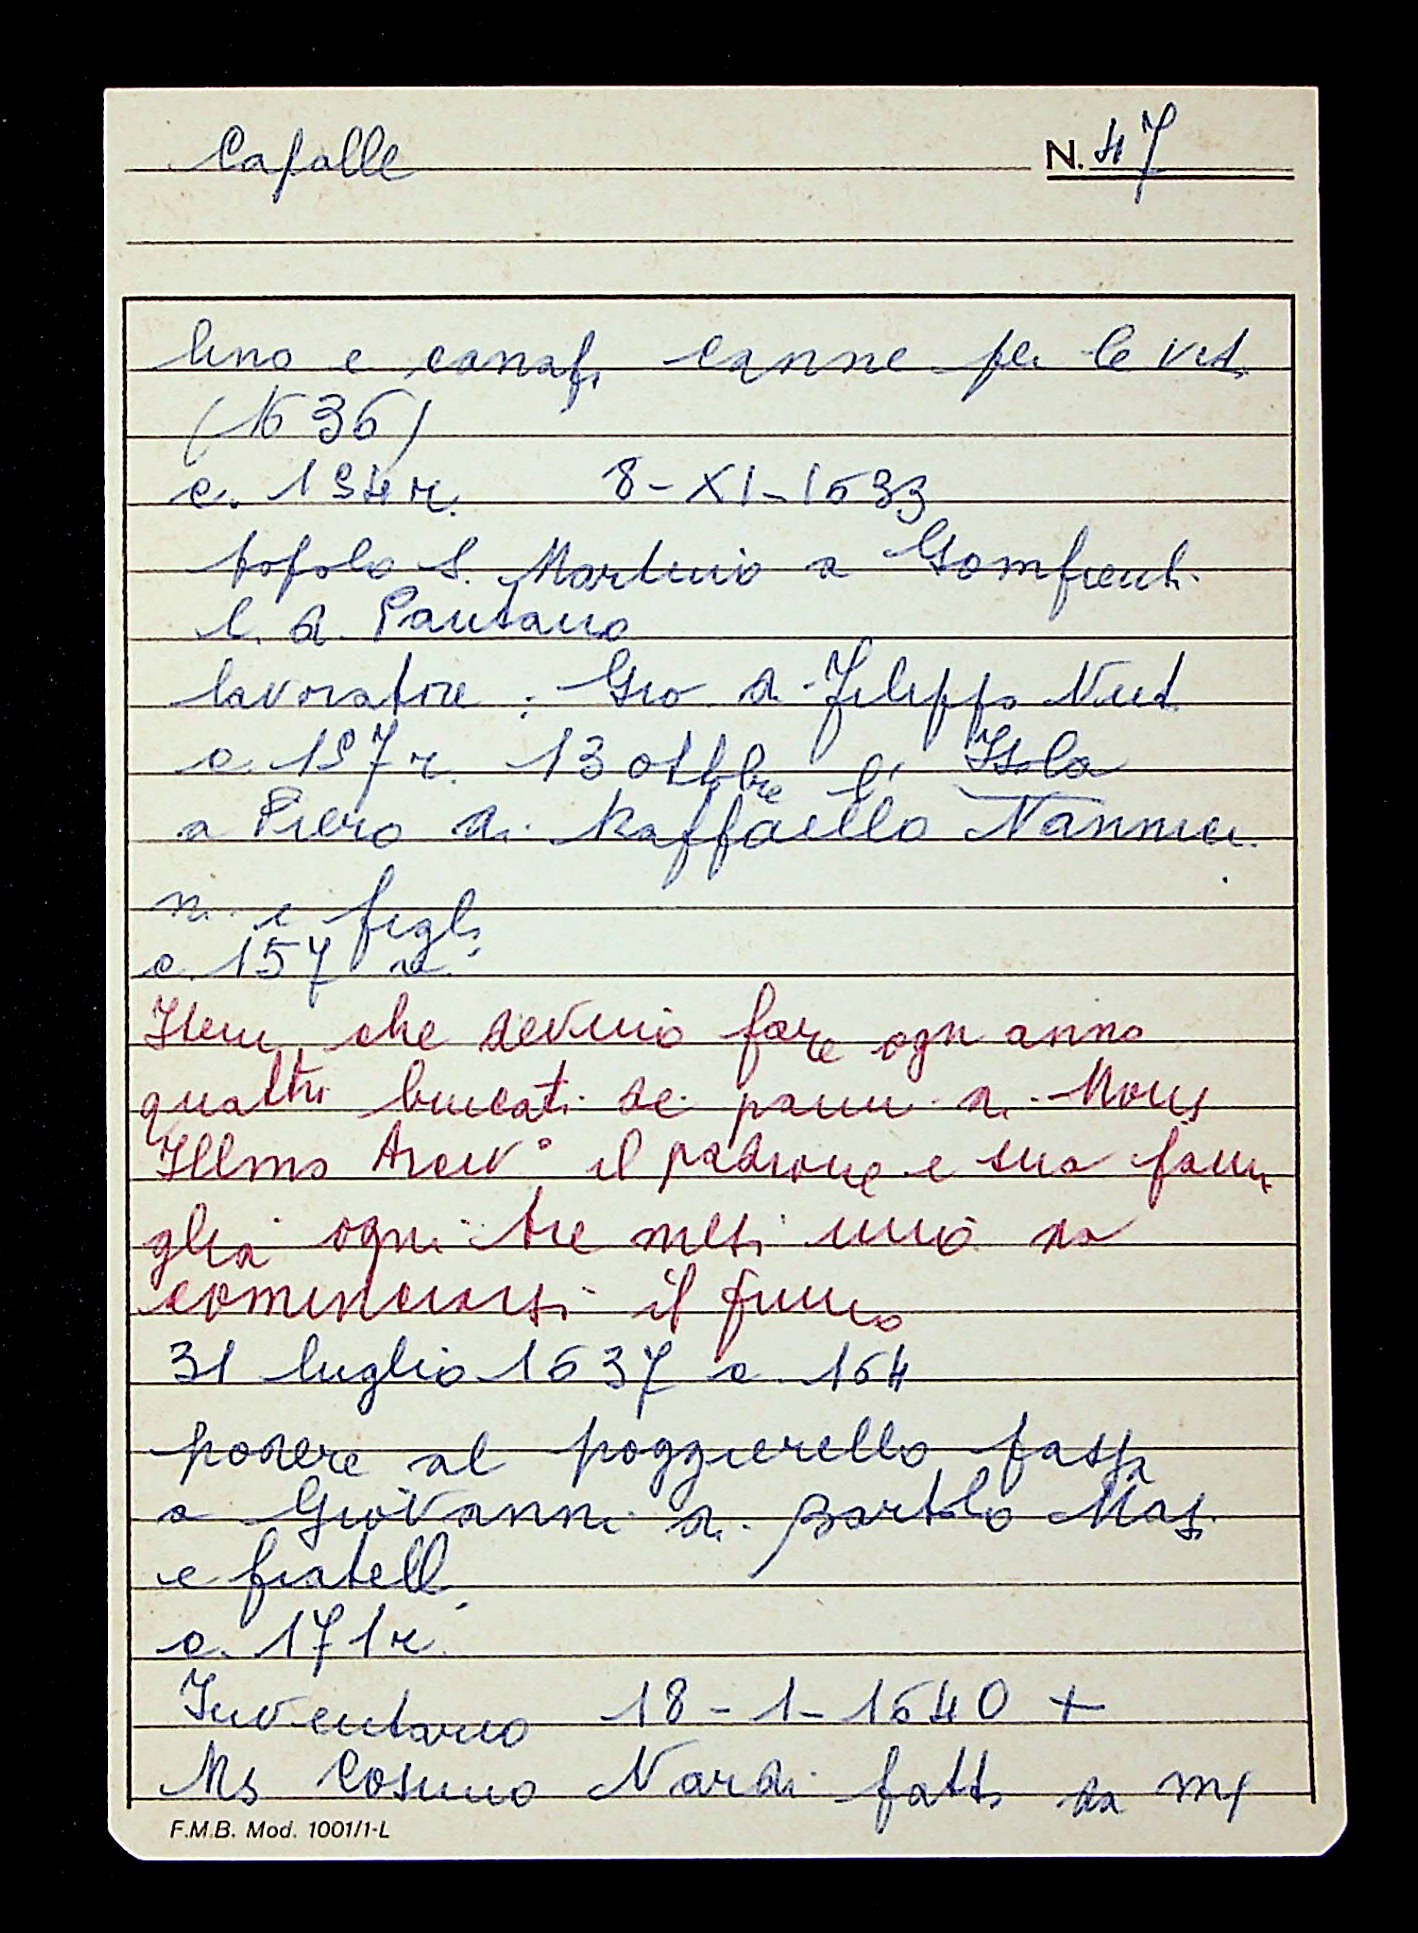 Capalle N. 47
lino e canapa canne per le viti
(1636)
c. 134r. 8-XI-1633
popolo S. Martino a Gonfienti
l. d. Pantano
lavoratore: Gio di Filippo
c. 137r. 13 ottobre l' Isola
a Piero di Raffaello Nannuc
ni e figli
c. 157 r.
Item che devino fare ogn anno
quattro bucati de panni di Mons
Illmo Arciv° il padrone e sua fami
glia ogni tre mesi uno da
cominciarsi il primo
31 luglio 1637 c. 164
podere al poggierello
a Giovanni di Bartolo Masi
e fratelli
c. 171r.
Inventario 18-1-1640 +
Ms Cosimo Nardi fatto da
F.M.B. Mod. 1001/1-L